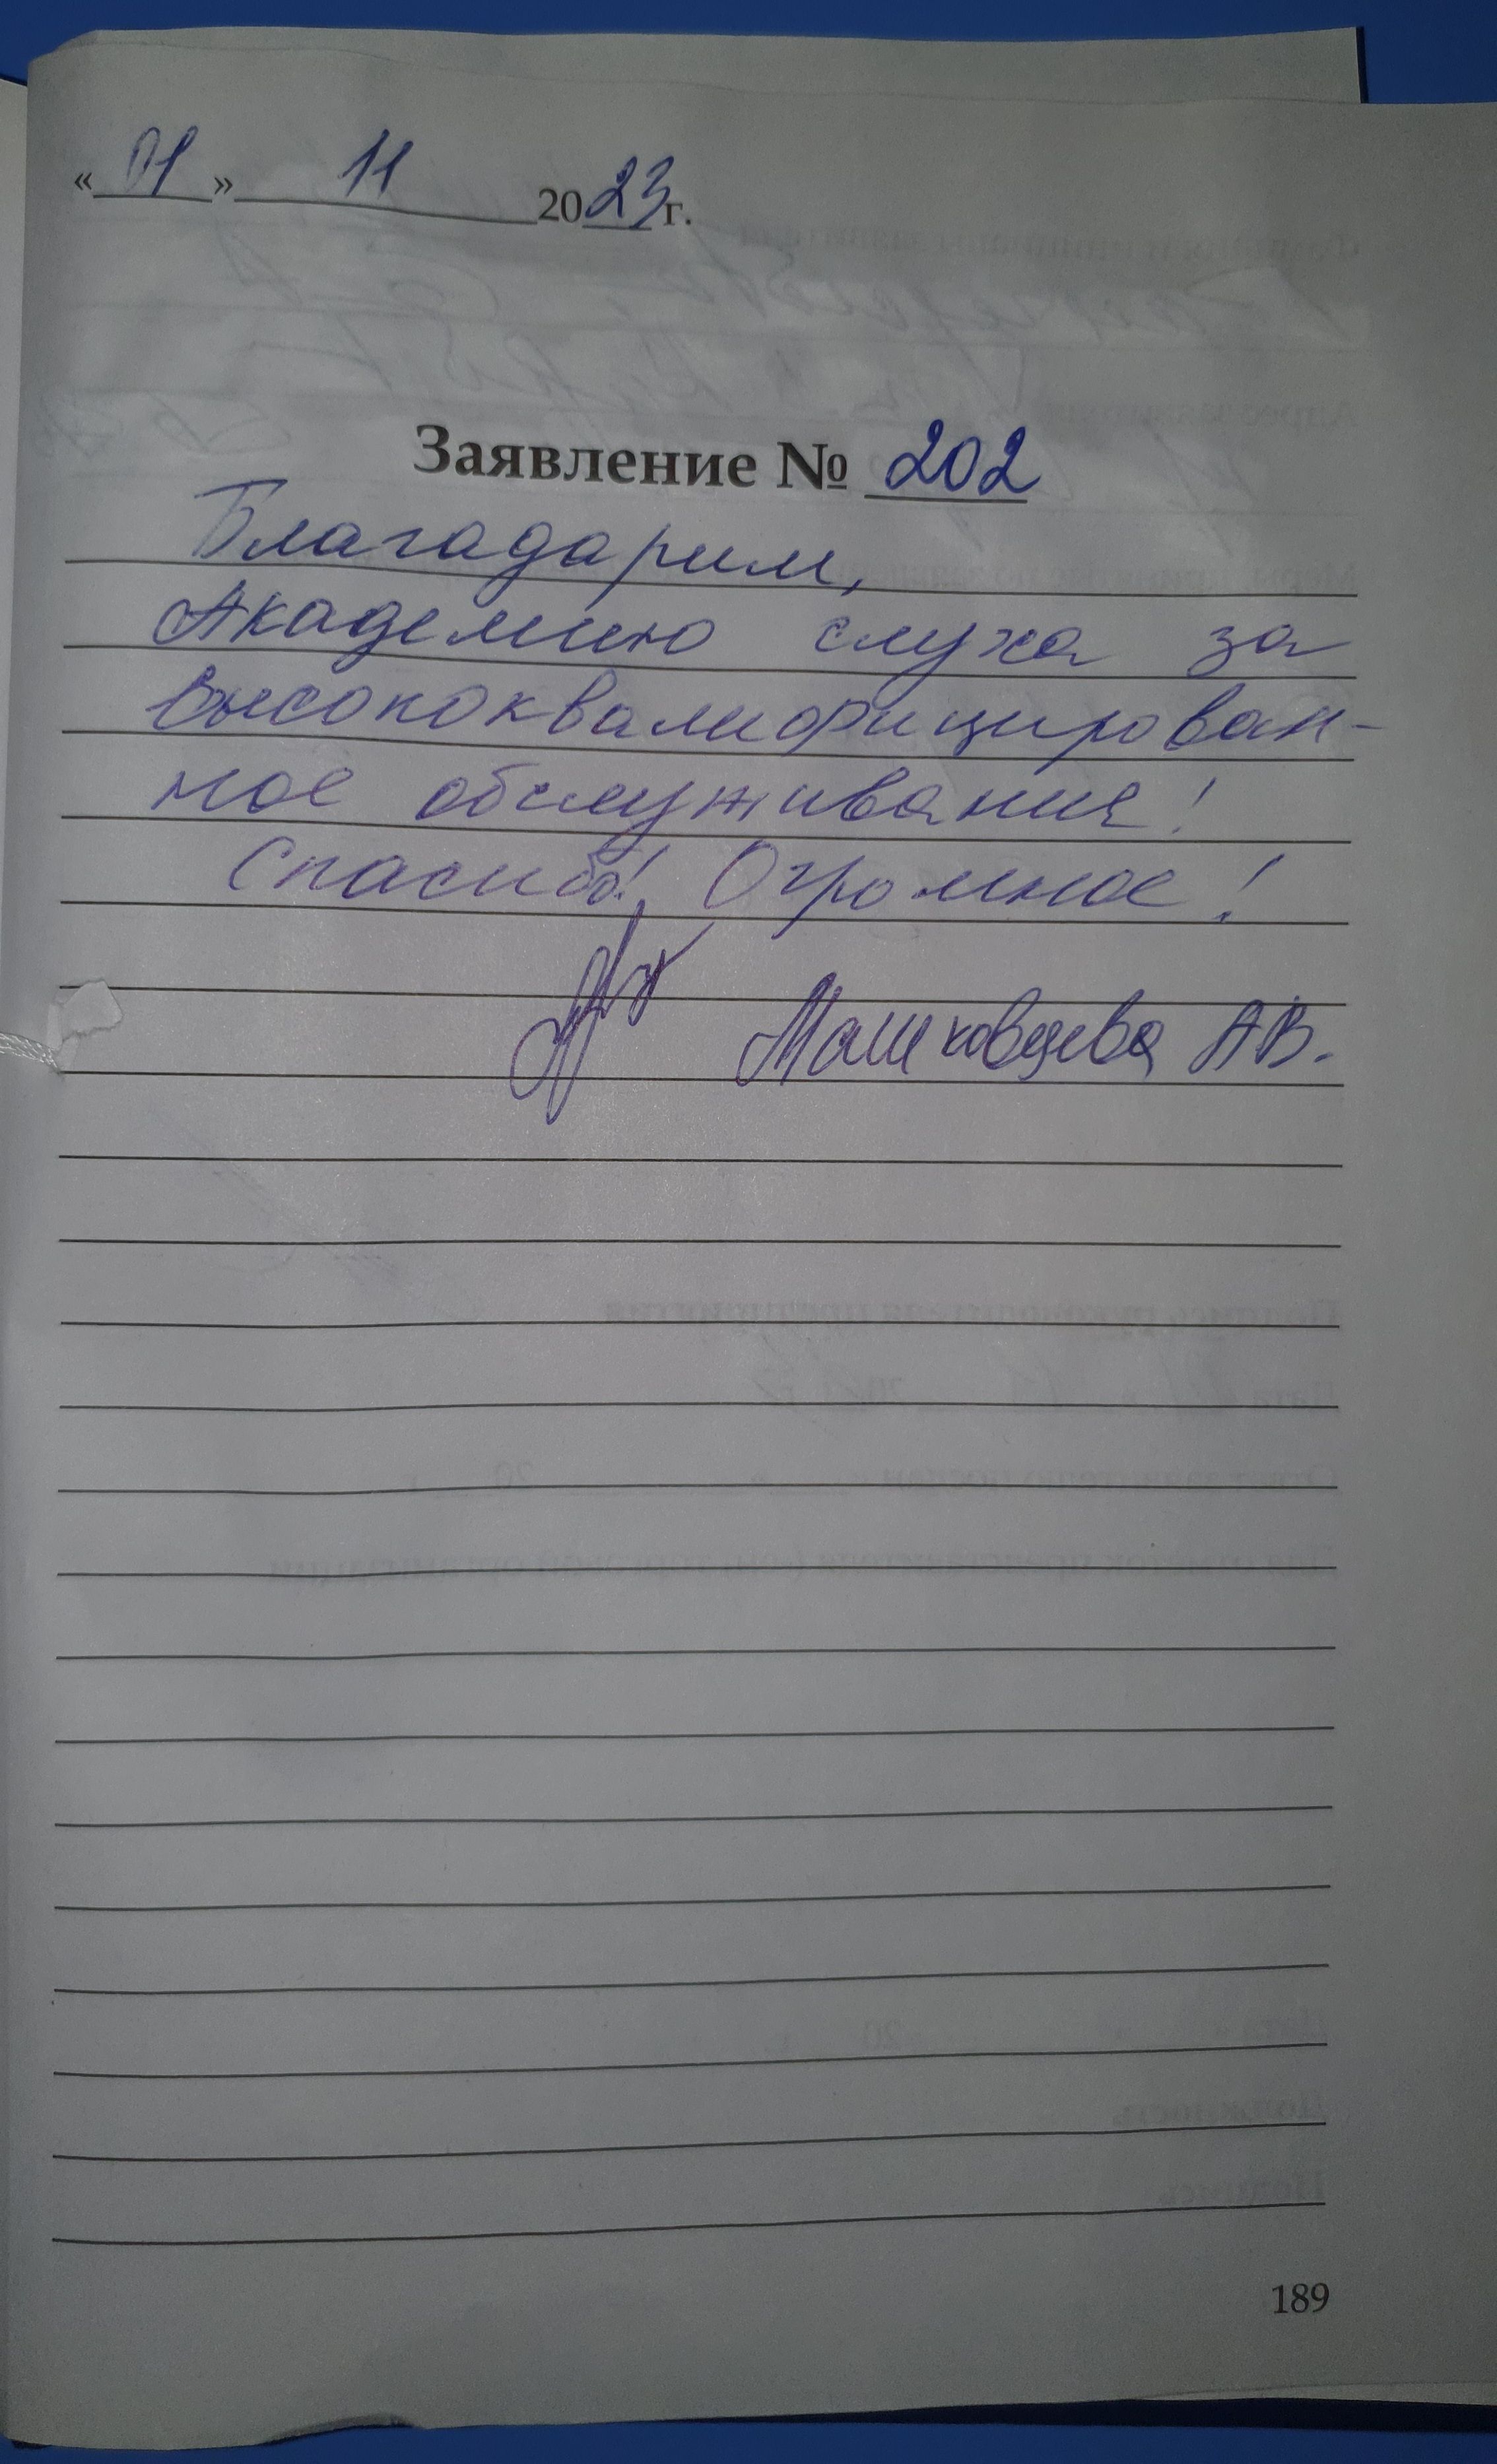 «01» 11 2023г.
Заявление № 202
Благадарим,
Академию слуха за
высококвалифицирован-
ное обслуживание!
Спасибо! Огромное!
Машковцева А.В.
189